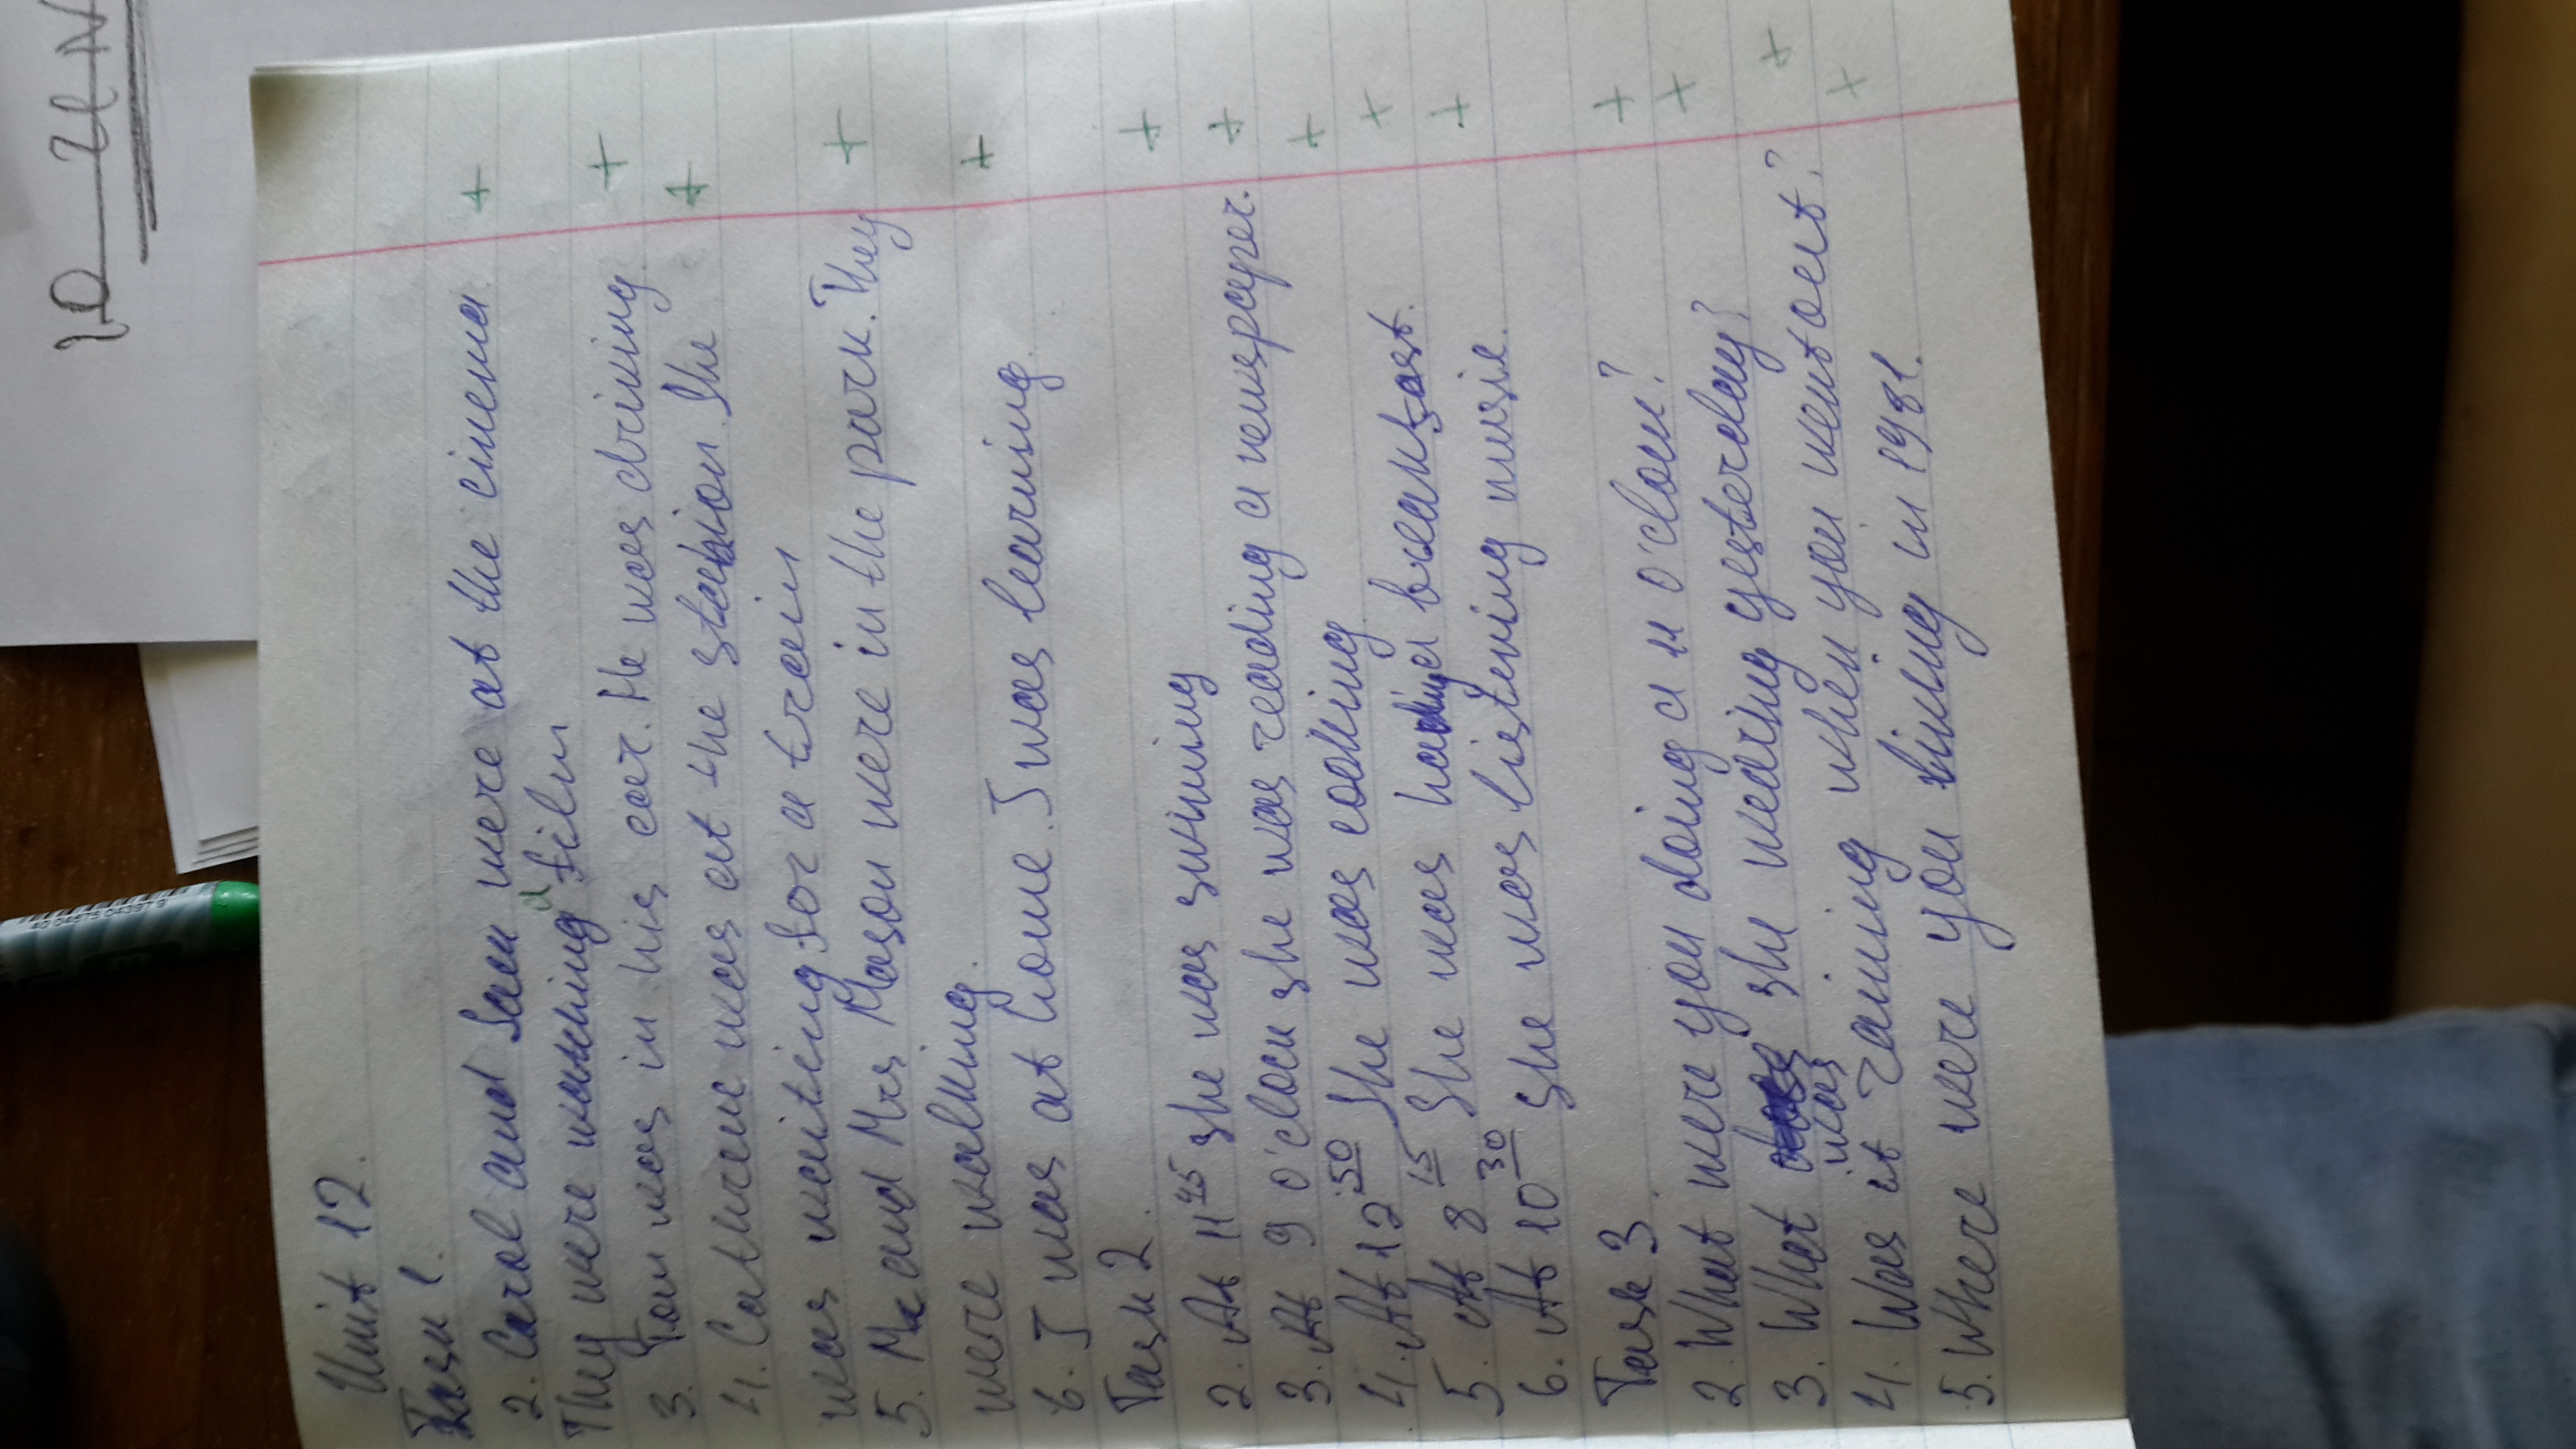 10 UN
Unit 12.
Task 1.
2. Carol and Jack were at the cinema. +
They were watching a film
3. Tom was in his car. He was driving. +
4. Cathrene was at the station. She +
was waiting for a train
5. Mr and Mrs Mason were in the park. They +
were walking.
6. I was at home. I was learning. +
Task 2.
2. At 11 45 she was swiming +
3. At 9 o'clock she was reading a newspaper. +
4. At 12 :50 She was cooking. +
5. At 8 15 She was having a breakfast. +
6. At 10 30 she was listening music. +
Task 3.
2. What were you doing a 11 o'clock? +
3. What was she wearing yesterday? +
4. Was it raining when you went out? +
5. Where were you living in 1981. +